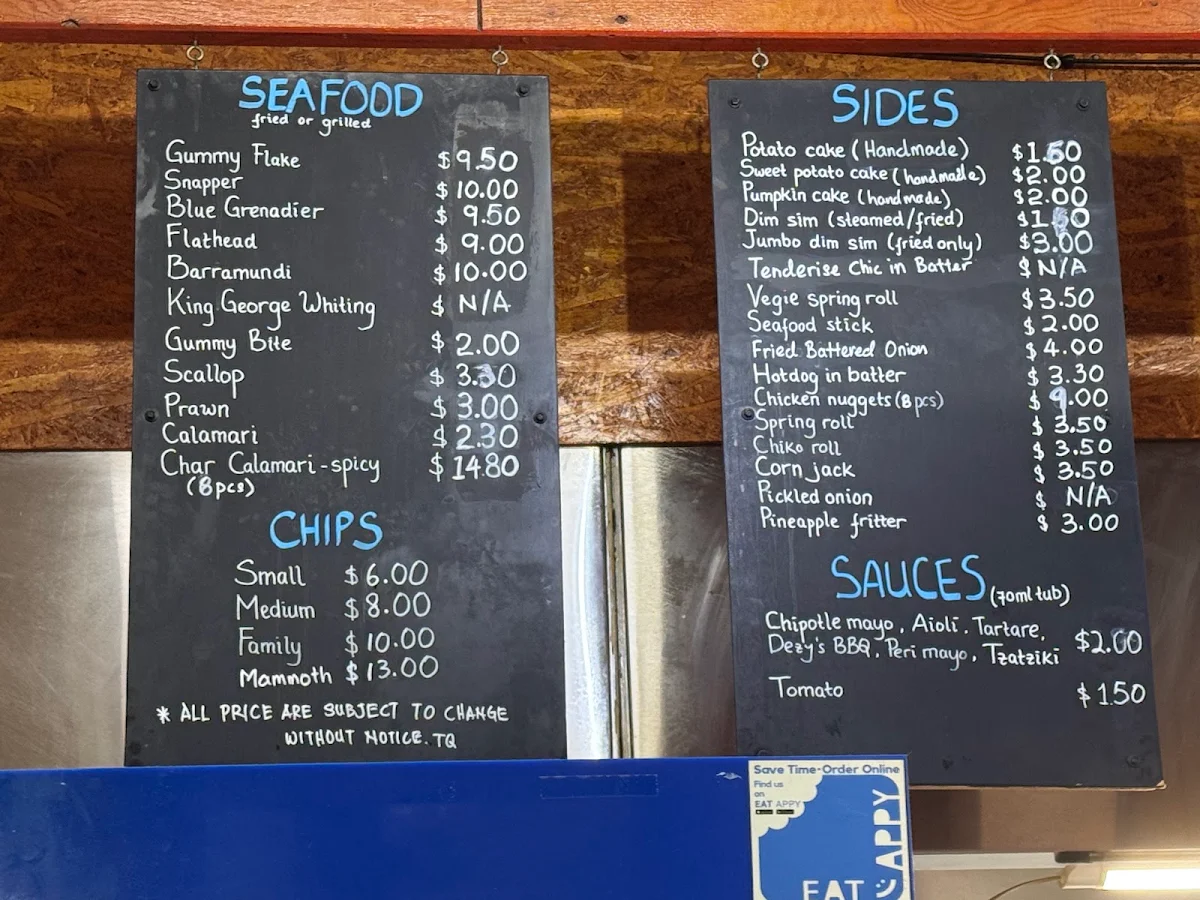 SEAFOOD
fried or grilled
Gummy Flake $ 9.50
Snapper $ 10.00
Blue Grenadier $ 9.50
Flathead $ 9.00
Barramundi $ 10.00
King George Whiting $ N/A
Gummy Bite $ 2.00
Scallop $ 3.30
Prawn $ 3.00
Calamari $ 2.30
Char Calamari-spicy $ 14.80
(8pcs)
CHIPS
Small $ 6.00
Medium $ 8.00
Family $ 10.00
Mammoth $ 13.00
* ALL PRICE ARE SUBJECT TO CHANGE
WITHOUT NOTICE. TQ
SIDES
Potato cake (Handmade) $1.60
Sweet potato cake (handmadle) $2.00
Pumpkin cake (handmade) $2.00
Dim sim (steamed/fried)
Jumbo dim sim (fried only) $3.00
Tenderise Chic in Batter $ N/A
Vegie spring roll $ 3.50
Seafood stick $ 2.00
Fried Battered Onion $ 4.00
Hotdog in batter $ 3.30
Chicken nuggets (8pcs) $ 9.00
Spring roll $ 3.50
Chiko roll $ 3.50
Corn jack $ 3.50
Pickled onion $ N/A
Pineapple fritter $ 3.00
SAUCES (70ml tub)
Chipotle mayo, Aioli, Tartare,
Dezy's BBQ, Peri mayo, Tzatziki $2.00
Tomato $ 1.50
Save Time-Order Online
Find us
on
EAT APPY
EAT APPY